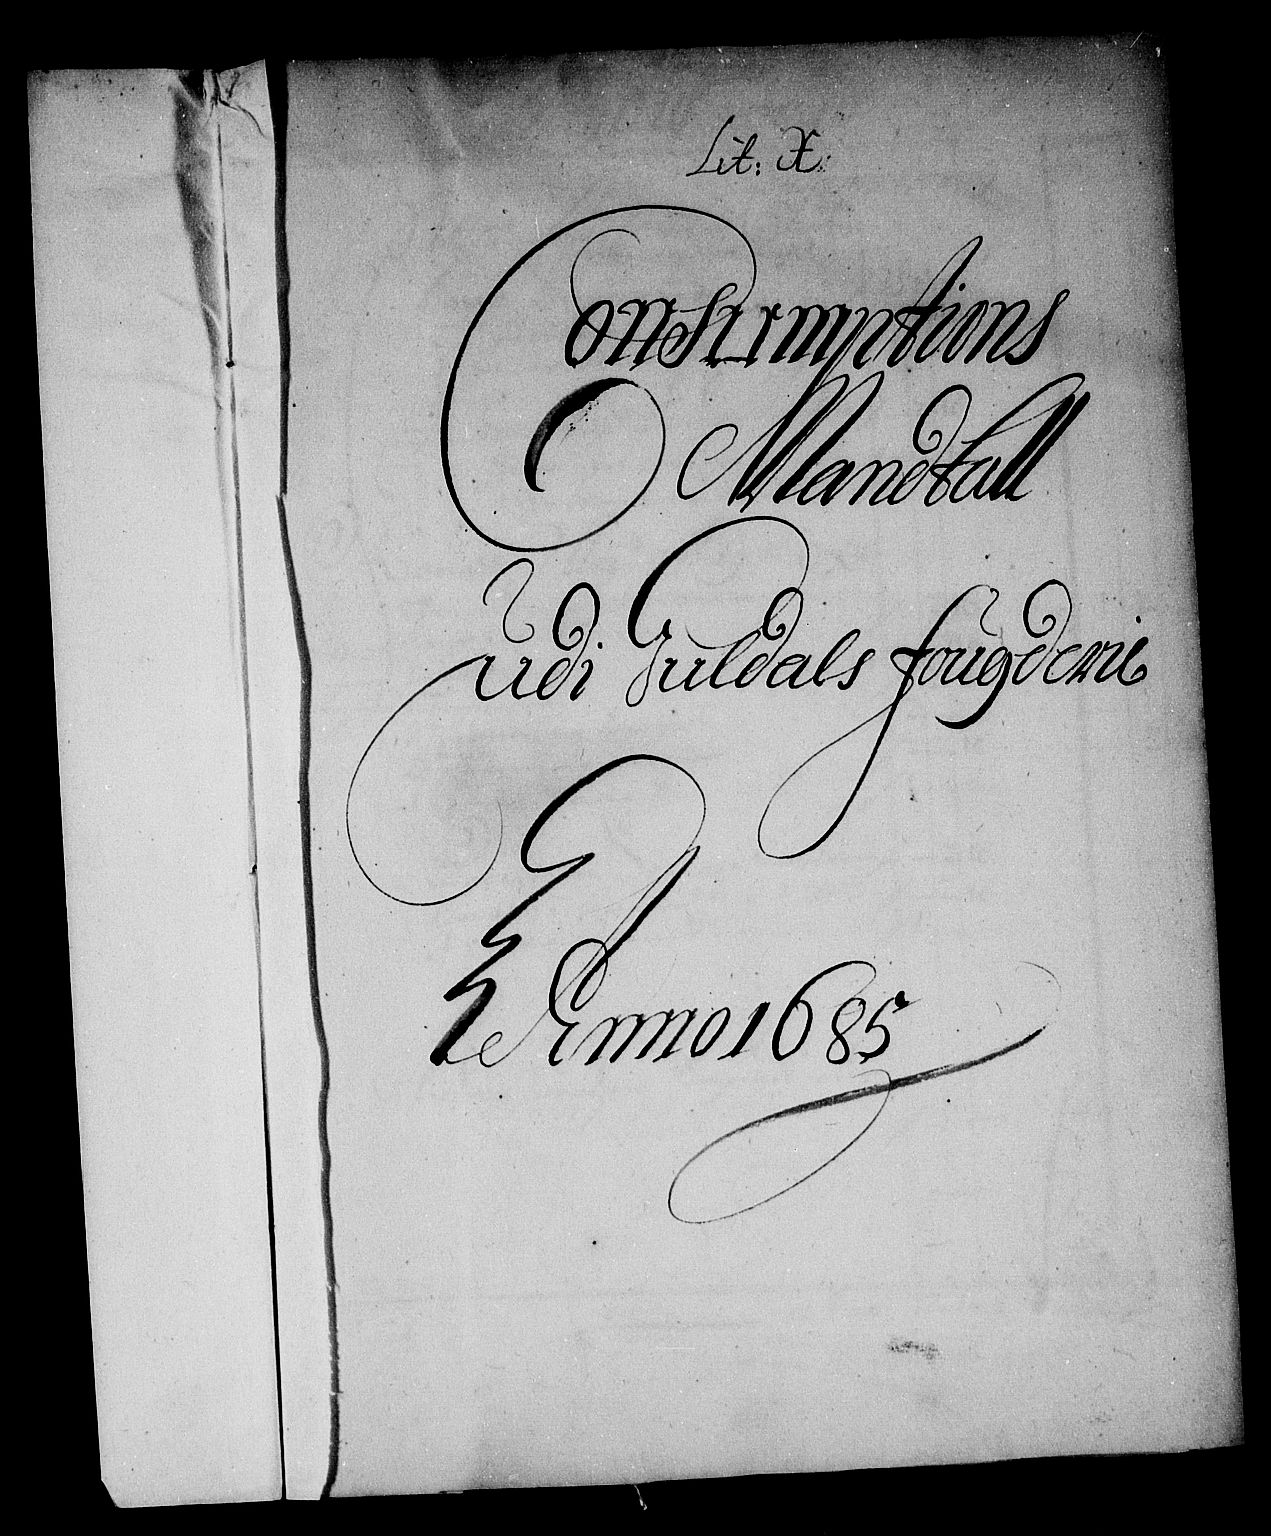 Lit: X:
Consumptions
Mandtall
Udi Guldals fougderie
Anno 1685